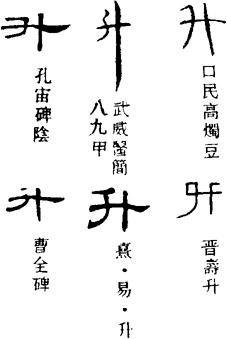 升
口民高燭豆
升
武威醫簡
八九甲
升
孔宙碑陰
升
晋壽升
升
熹·易·升
升
曹全碑